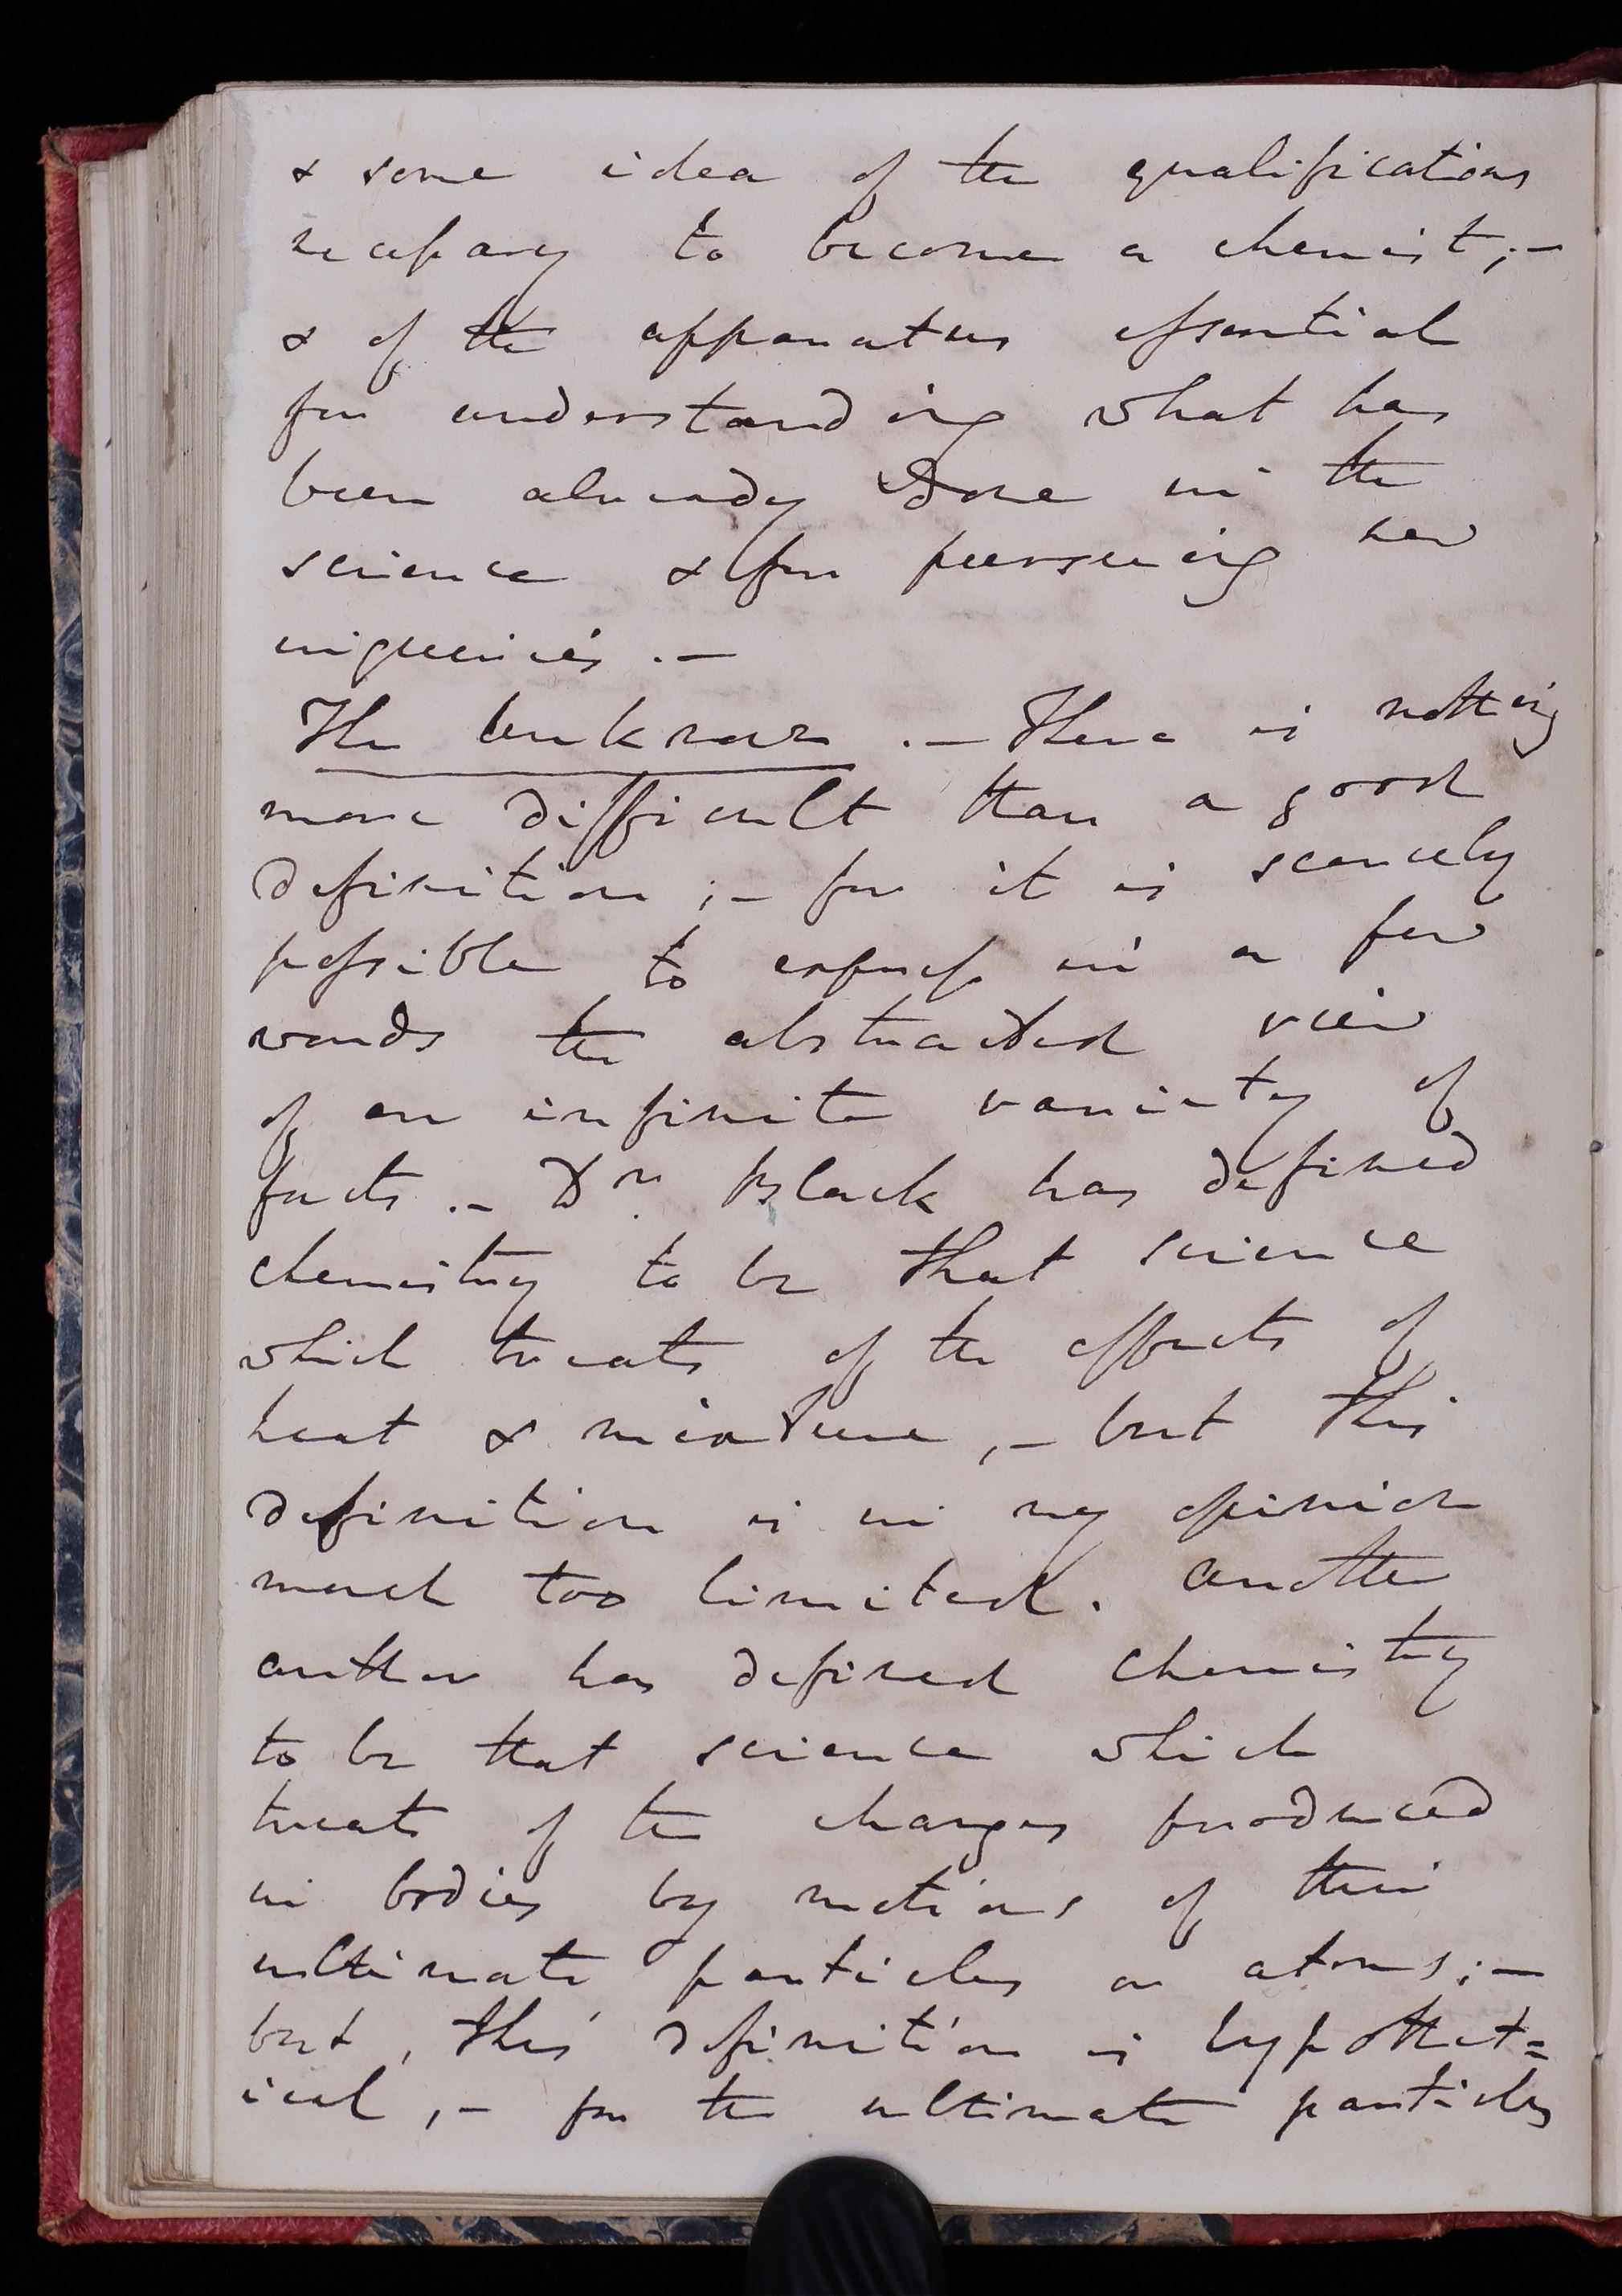 & some idea of the qualifications
necessary to become a chemist;-
& of the apparatus essential
for understanding what has
been already done in the
science & for pursuing new
inquiries.-
The Unknown.- There is nothing
more difficult than a good
definition;- for it is scarcely
possible to express in a few
words the abstracted view
of an infinite variety of
facts.- Dr. Black has defined
chemistry to be that science
which treats of the effects of
heat & mixture,- but this
definition is in my opinion
much too limited. Another
author has defined chemistry
to be that science which
treats of the changes produced
in bodies by motions of their
ultimate particles or atoms;-
but, this definition is hypothet=
ical,- for the ultimate particles